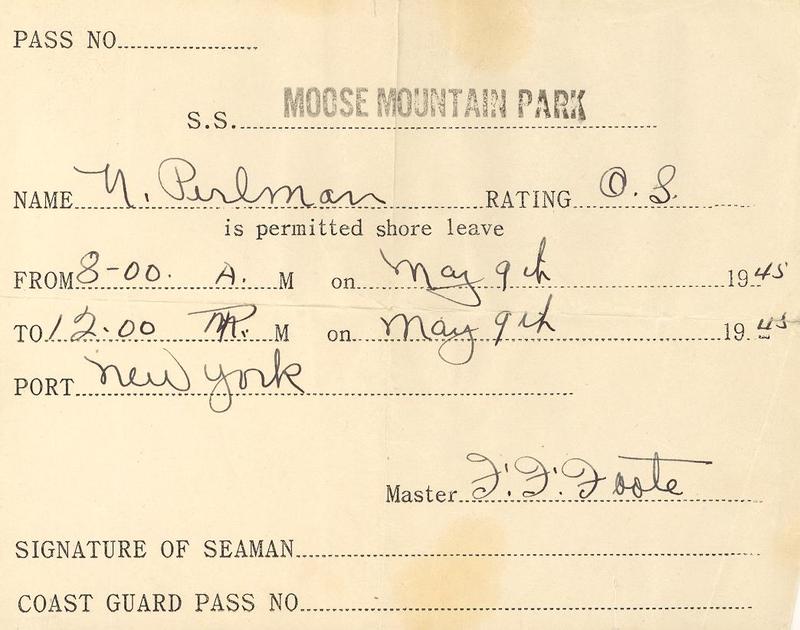 PASS NO
S.S. MOOSE MOUNTAIN PARK
NAME N. Perlman RATING O. S.
is permitted shore leave
FROM 8-00. A. M on May 9th 1945
TO 12.00 M on May 9th 1945
PORT New York
Master F. F. Foote
SIGNATURE OF SEAMAN
COAST GUARD PASS NO